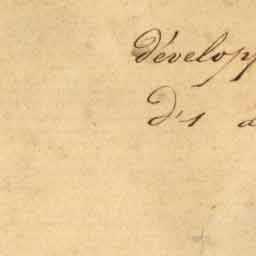 développ
d's a